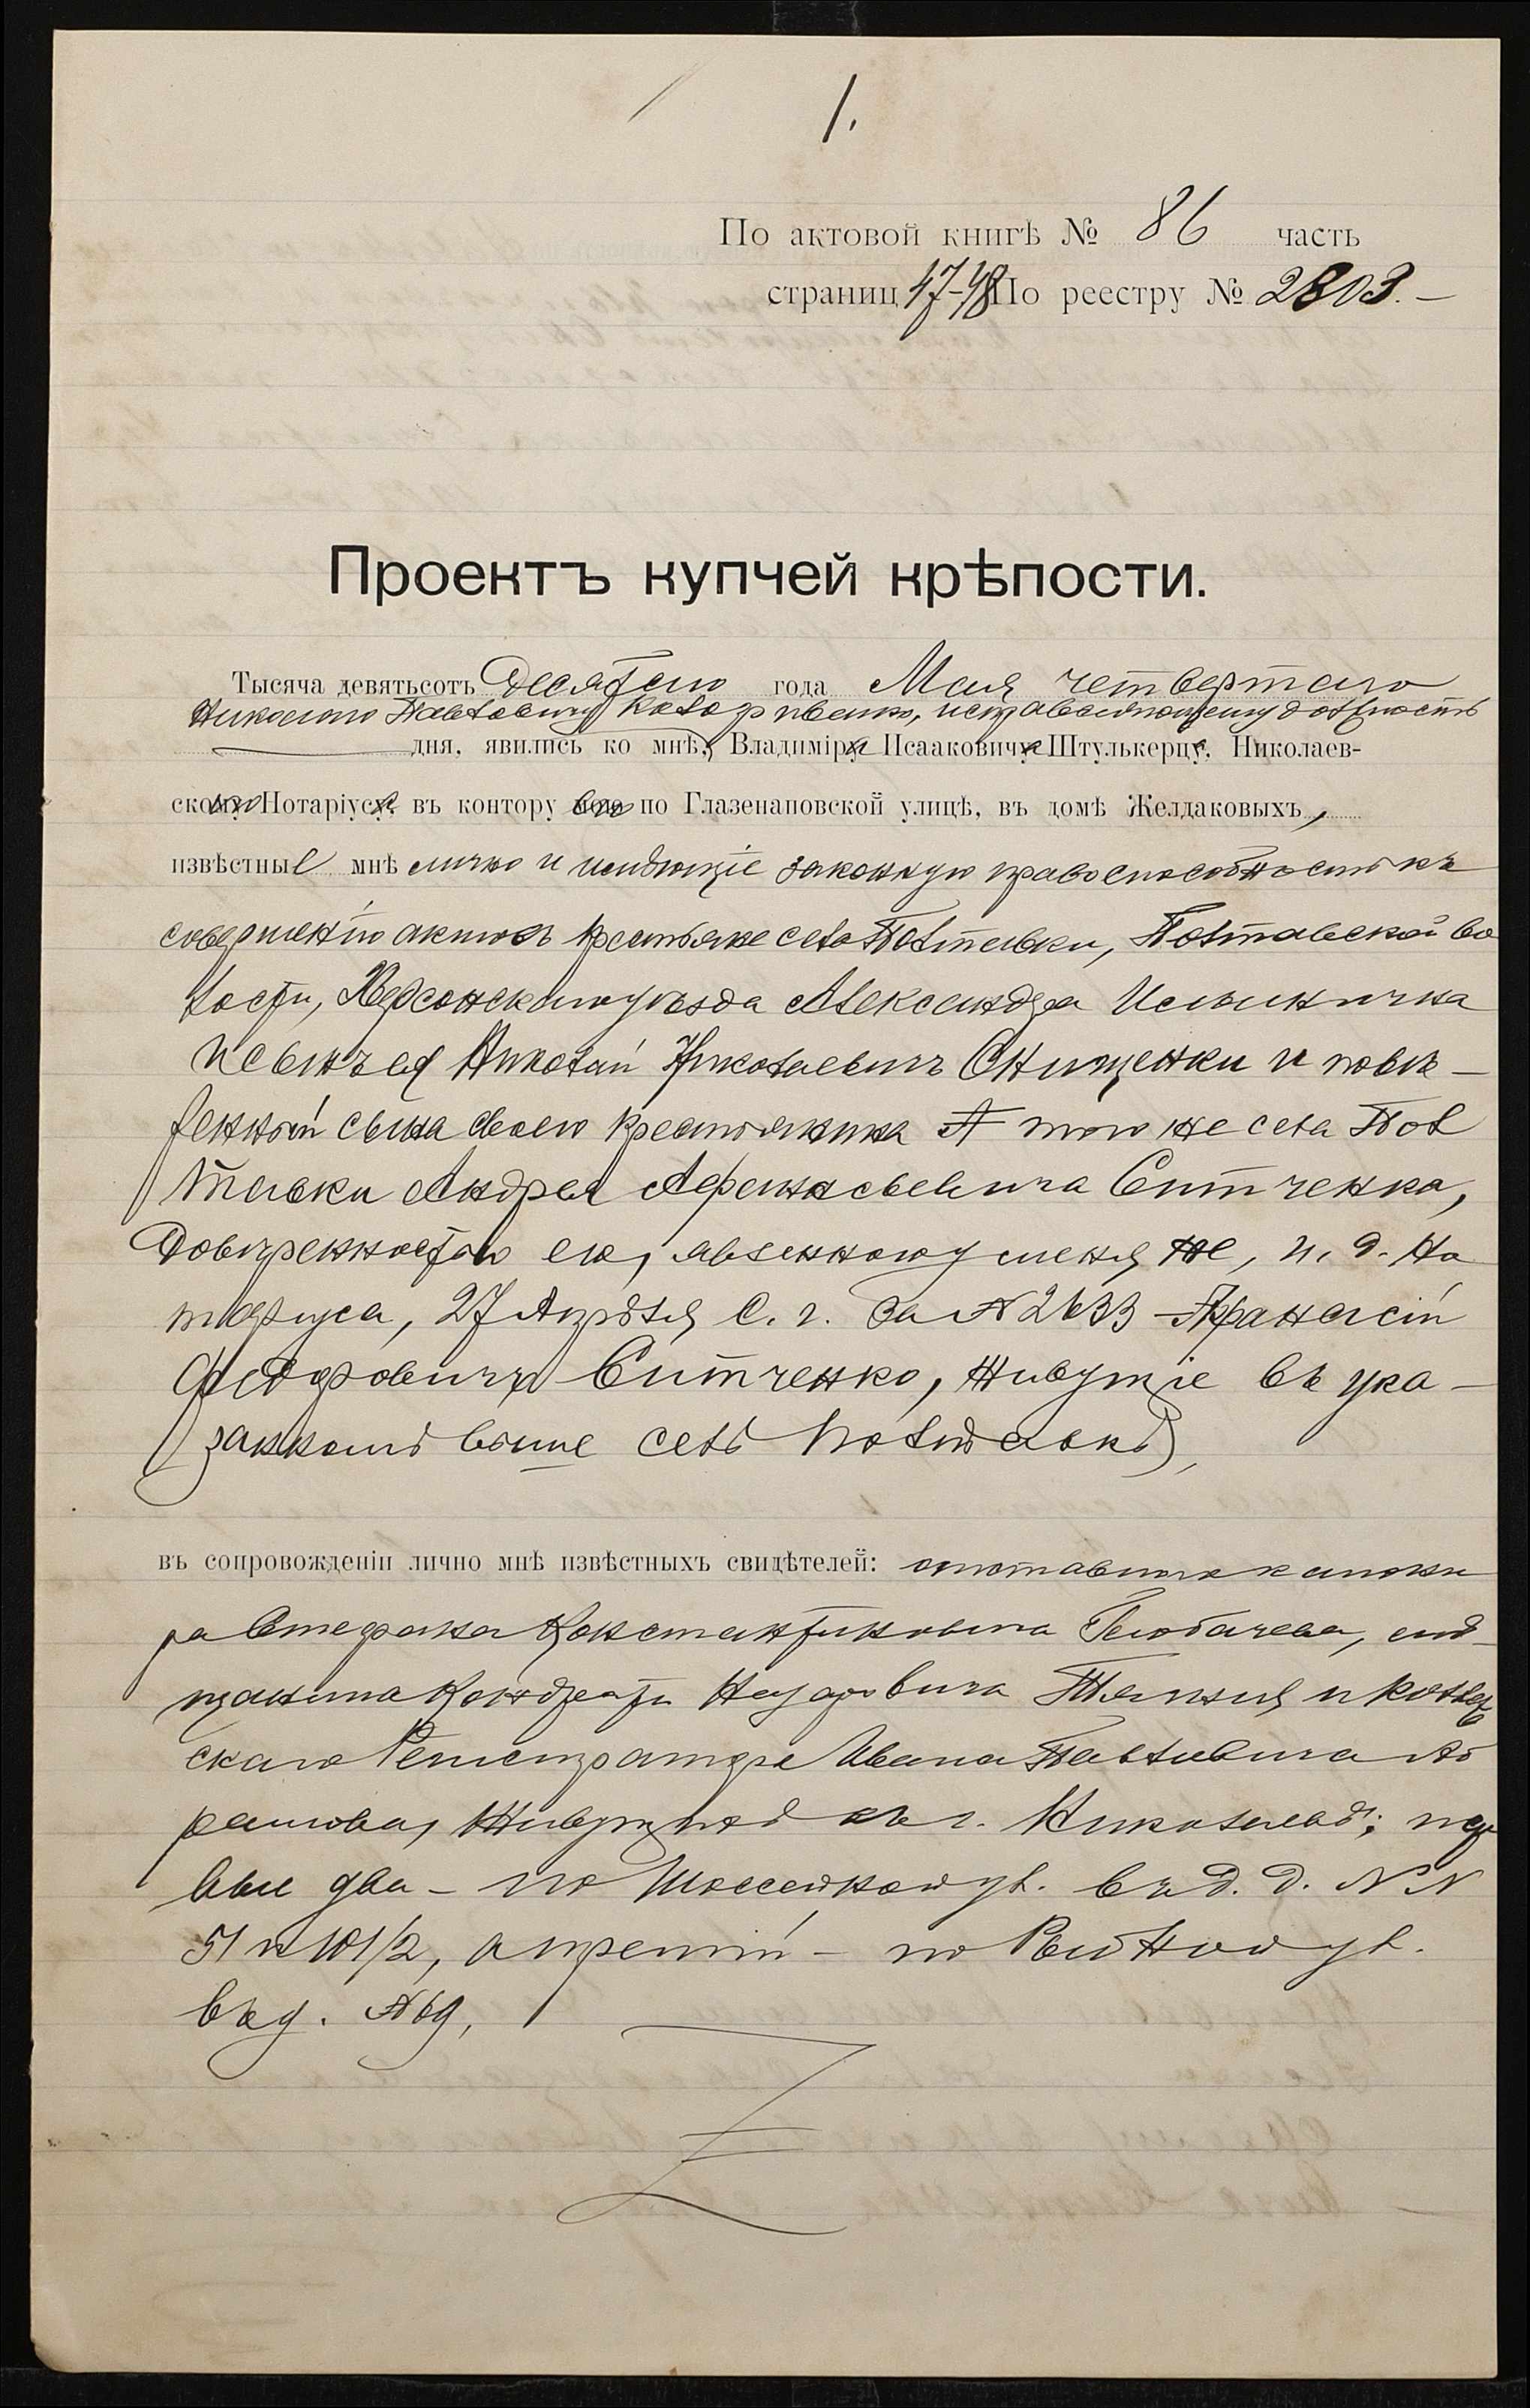 1.
По актовой книгѣ № 86 часть
страниц 47-48 По реестру № 2803. —
Проектъ купчей крѣпости.
Тысяча девятьсотъ десятаго года Мая четвертаго
Николаю Павловичу исправляющему должность
дня, явились ко мнѣ, Владимира Исааковича Штулькерца, Николаев-
скаго Нотаріуса, въ контору его по Глазенаповской улицѣ, въ домѣ Желдаковыхъ,
извѣстные мнѣ лично и имѣющіе законную правоспособность къ
совершенію актовъ крестьяне села Полтавки, Полтавской во
лости, Херсонскаго уѣзда Александра Ильинична
и сынъ ея Николай Николаевичъ Онищенки и повѣ-
ренный сына своего крестьянина того же села Пол
тавки Андрея Афанасьевича Ситченка,
довѣренностью его, явленною у меня же, и. д. Но
таріуса, 27 Апрѣля с. г. за № 2633 Афанасій
Федоровичъ Ситченко, живущіе въ ука-
занномъ выше селѣ Полтавкѣ,
въ сопровожденіи лично мнѣ извѣстныхъ свидѣтелей: отставного канони
ра Стефана Константиновича мѣ-
щанина Кондрата Назаровича и коллеж
скаго Регистратора Ивана Павловича Аб
рамова, живущихъ въ г. Николаевѣ; пер
вые два - по ул. въ д. д. №№
51 и 101/2, а третій - по Рыбной ул.
въ д. № 69,